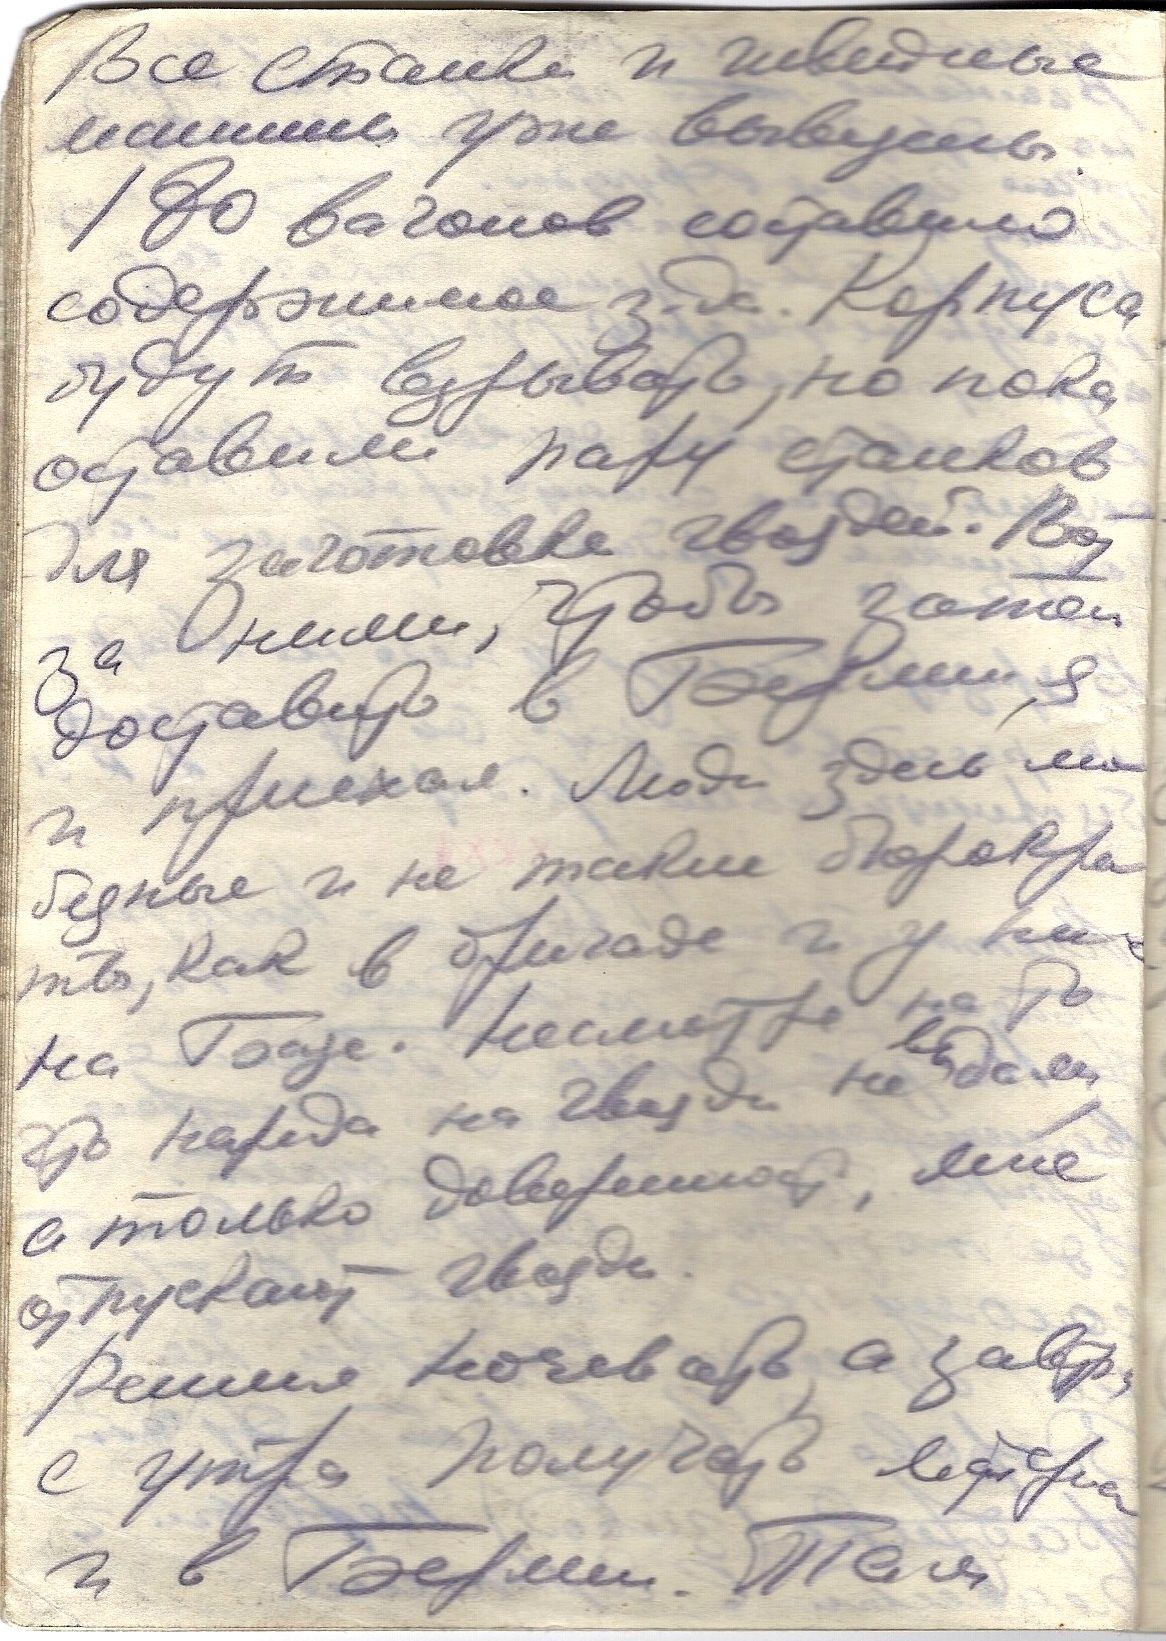 Все станки и швейные
машины уже вывезены.
180 вагонов составило
содержимое з-да. Корпуса
будут взрывать, но пока
оставили пару станков
для заготовки гвоздей. Вот
за ними, чтобы затем
доставить в Берлин, я
и приехал. Люди здесь лю
безные и не такие бюрокра
ты, как в бригаде и у них
на Базе. Несмотря на то
что наряда на гвозди не выдали
а только доверенность, мне
отпускают гвозди.
Решил ночевать, а завтра
с утра получать
и в Берлин. Там